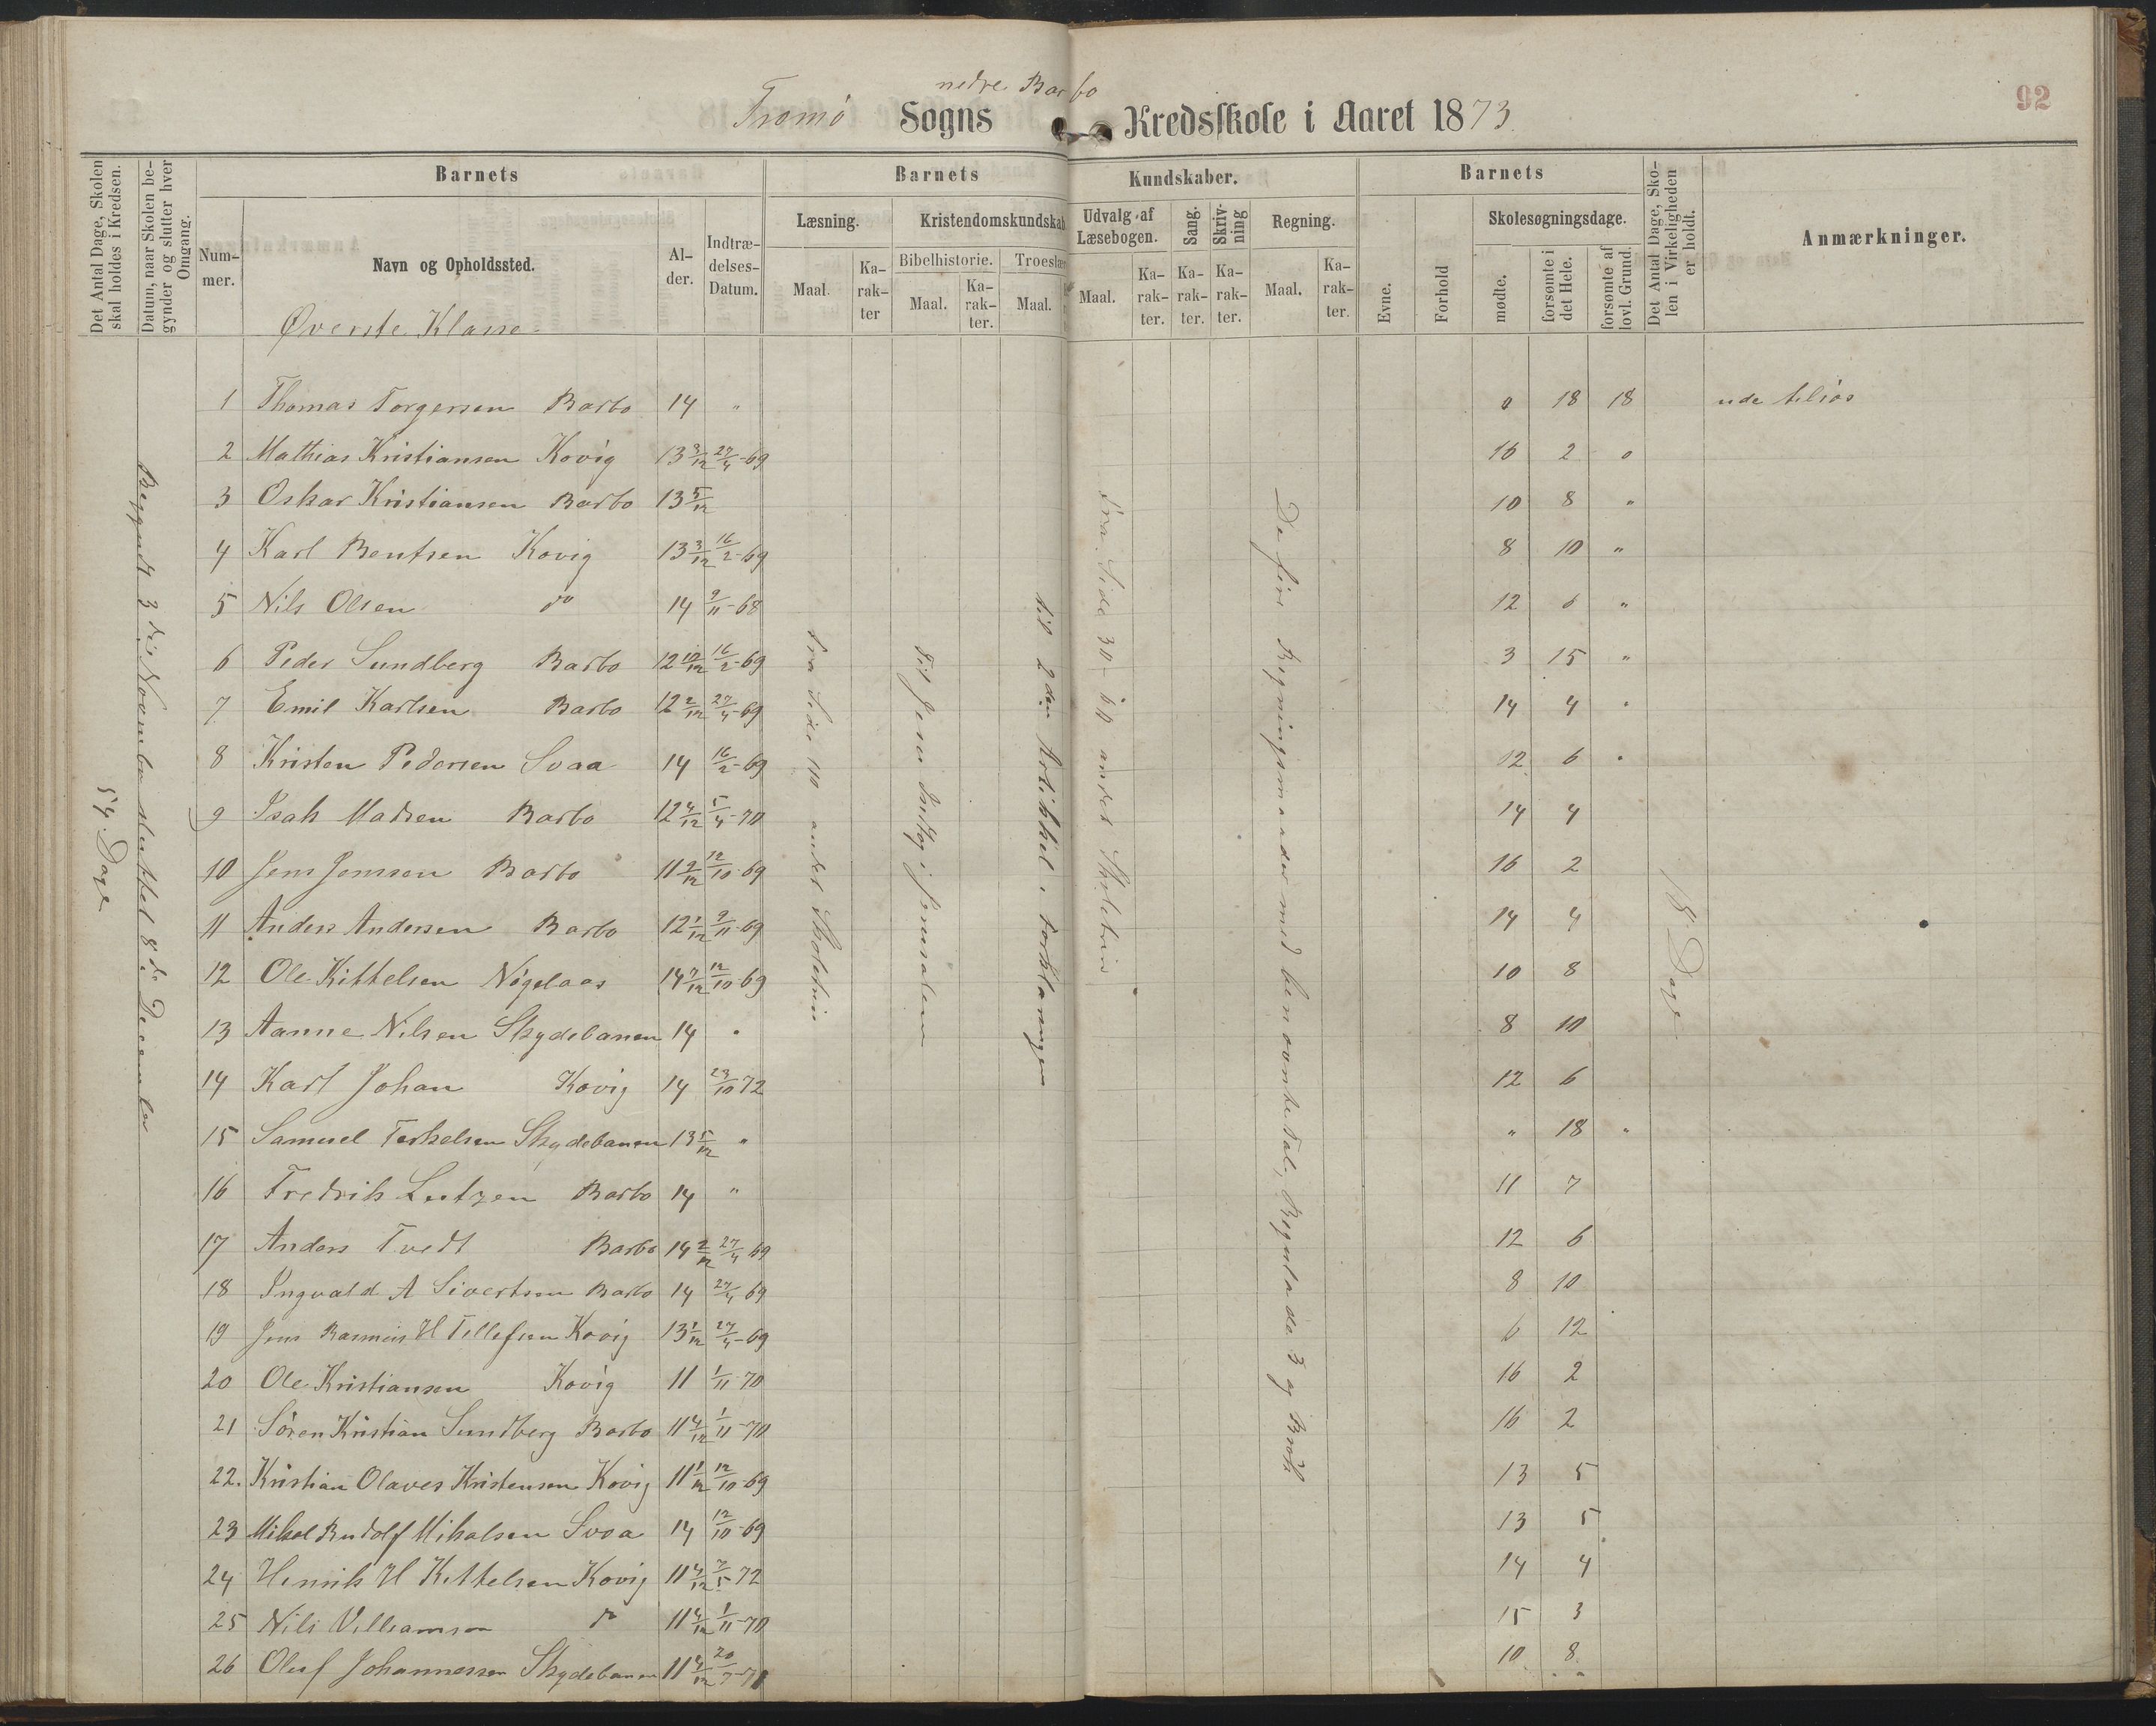 92
nedre Barbo
Tromø Sogns Kredsskole i Aaret 1873.
Det Antal Dage, Skolen skal holdes i Kredsen.
Datum, naar Skolen begynder og slutter hver Omgang.
Barnets
Num-mer.
Navn og Opholdssted.
Al-der.
Indtræ-delses-Datum.
Barnets Kundskaber.
Læsning.
Maal. Ka-rak-ter
Kristendomskundskab
Bibelhistorie. Troeslær
Maal. Ka-rak-ter. Maal.
Udvalg af Læsebogen.
Maal. Ka-rak-ter.
Sang. Ka-rak-ter.
Skriv-ning Ka-rak-ter.
Regning.
Maal. Ka-rak-ter.
Barnets
Evne. Forhold
Skolesøgningsdage.
mødte. forsømte i det Hele. forsømte af lovl. Grund.
Det Antal Dage, Sko-len i Virkeligheden er holdt.
Anmærkninger.
Øverste Klasse
54 Dage
Begyndt 3die November sluttet 8de December
fra Side 110 andet Skoletrin
til Jesu Indtog i Jerusalem
til 2den Artikkel i Forklaringen
Fra Side 30-60 andet Skoletrin
De fire Regningsmaader med benævnte Tal, Regulade 3 og Brøk
18 Dage
1 Thomas Torgersen Barbo 14 " 0 18 18 ude tilsøs
2 Mathias Kristiansen Kovig 13 9/12 27/4-69 16 2 0
3 Oskar Kristiansen Barbo 13 5/12 10 8 "
4 Karl Bentsen Kovig 13 3/12 16/2-69 8 10 "
5 Nils Olsen do 14 9/11-68 12 6 "
6 Peder Sundberg Barbo 12 10/12 16/2-69 3 15 "
7 Emil Karlsen Barbo 12 2/12 27/4-69 14 4 "
8 Kristen Pedersen Svaa 14 16/2-69 12 6 "
9 Isak Madsen Barbo 12 4/12 5/4-70 14 4
10 Jens Jensen Barbo 11 9/12 12/10-69 16 2
11 Anders Andersen Barbo 12 1/12 9/11-69 14 4
12 Ole Kittelsen Nøgelaas 14 7/12 12/10-69 10 8
13 Aanne Nilsen Skydebanen 14 " 8 10
14 Karl Johan Kovig 14 23/10 72 12 6
15 Samuel Terkelsen Skydebanen 13 5/12 " " 18 "
16 Fredrik Lutzen Barbo 14 " 11 7
17 Anders Tvedt Barbo 14 2/12 27/4 69 12 6
18 Ingvald A Sivertsen Barbo 14 27/4 69 8 10
19 Jens Rasmus H Tellefsen Kovig 13 1/12 27/4-69 6 12
20 Ole Kristiansen Kovig 11 1/11-70 16 2
21 Søren Kristian Sundberg Barbo 11 4/12 1/11-70 16 2
22. Kristian Olaves Kristensen Kovig 11 1/12 12/10-69 13 5
23 Mikal Rudolf Mikalsen Svaa 14 12/10-69 13 5
24 Henrik H Kittelsen Kovig 11 4/12 7/5 72 14 4
25 Nils Villiamsen do 11 4/12 1/11-70 15 3
26 Oluf Johannessen Skydebanen 11 4/12 20/7-71 10 8